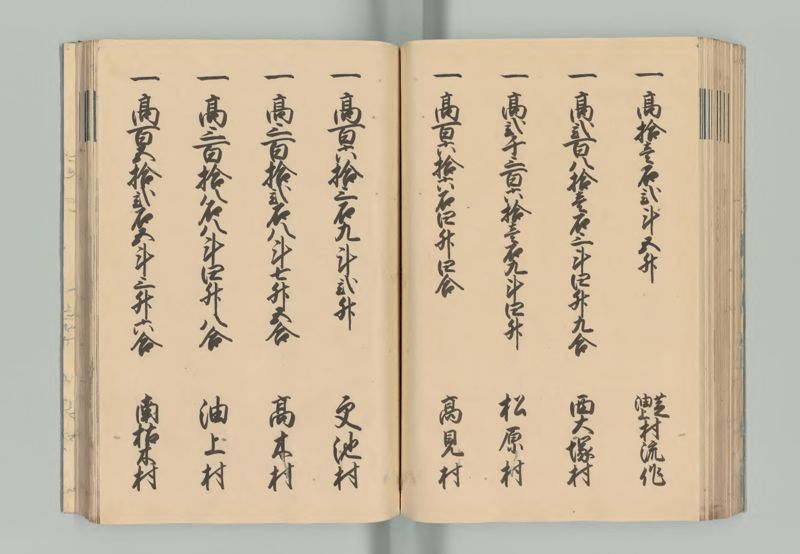 一 高拾壱石弐斗五升 芝油上村流作
一 高弐百八拾壱石三斗四升九合 西大塚村
一 高弐千三百六拾壱石九斗四升 松原村
一 高百六拾六石四升四合 高見村
一 高百六拾三石九斗弐升 更池村
一 高三百拾弐石八斗七升五合 高木村
一 高三百拾八石八斗四升八合 油上村
一 高百五拾弐石五斗三升六合 南枯木村